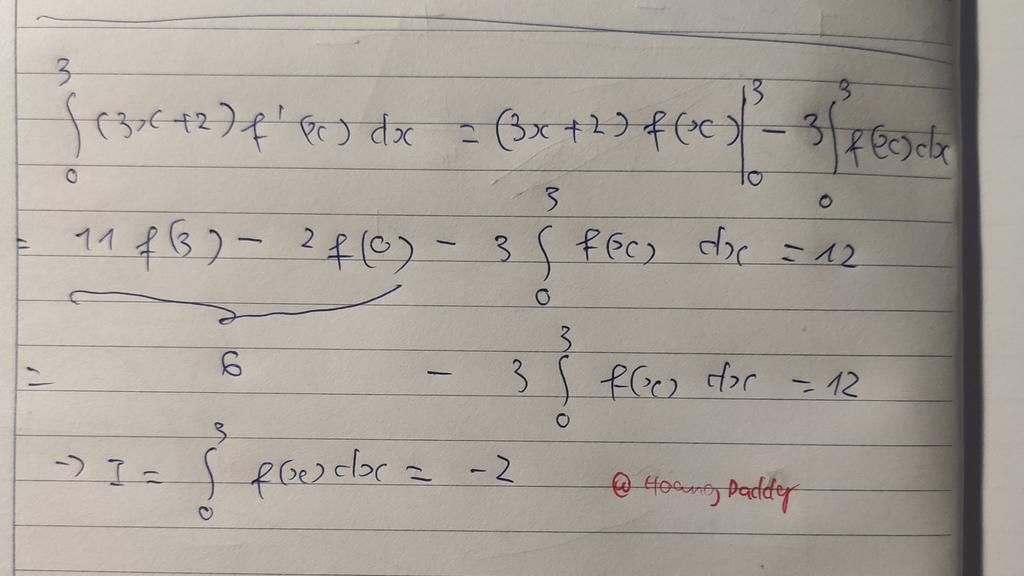 ∫₀³ (3x+2) f'(x) dx = (3x+2) f(x) |₀³ - 3 ∫₀³ f(x) dx
= 11 f(3) - 2 f(0) - 3 ∫₀³ f(x) dx = 12
= 6 - 3 ∫₀³ f(x) dx = 12
→ I = ∫₀³ f(x) dx = -2
@ Hoang Daddy